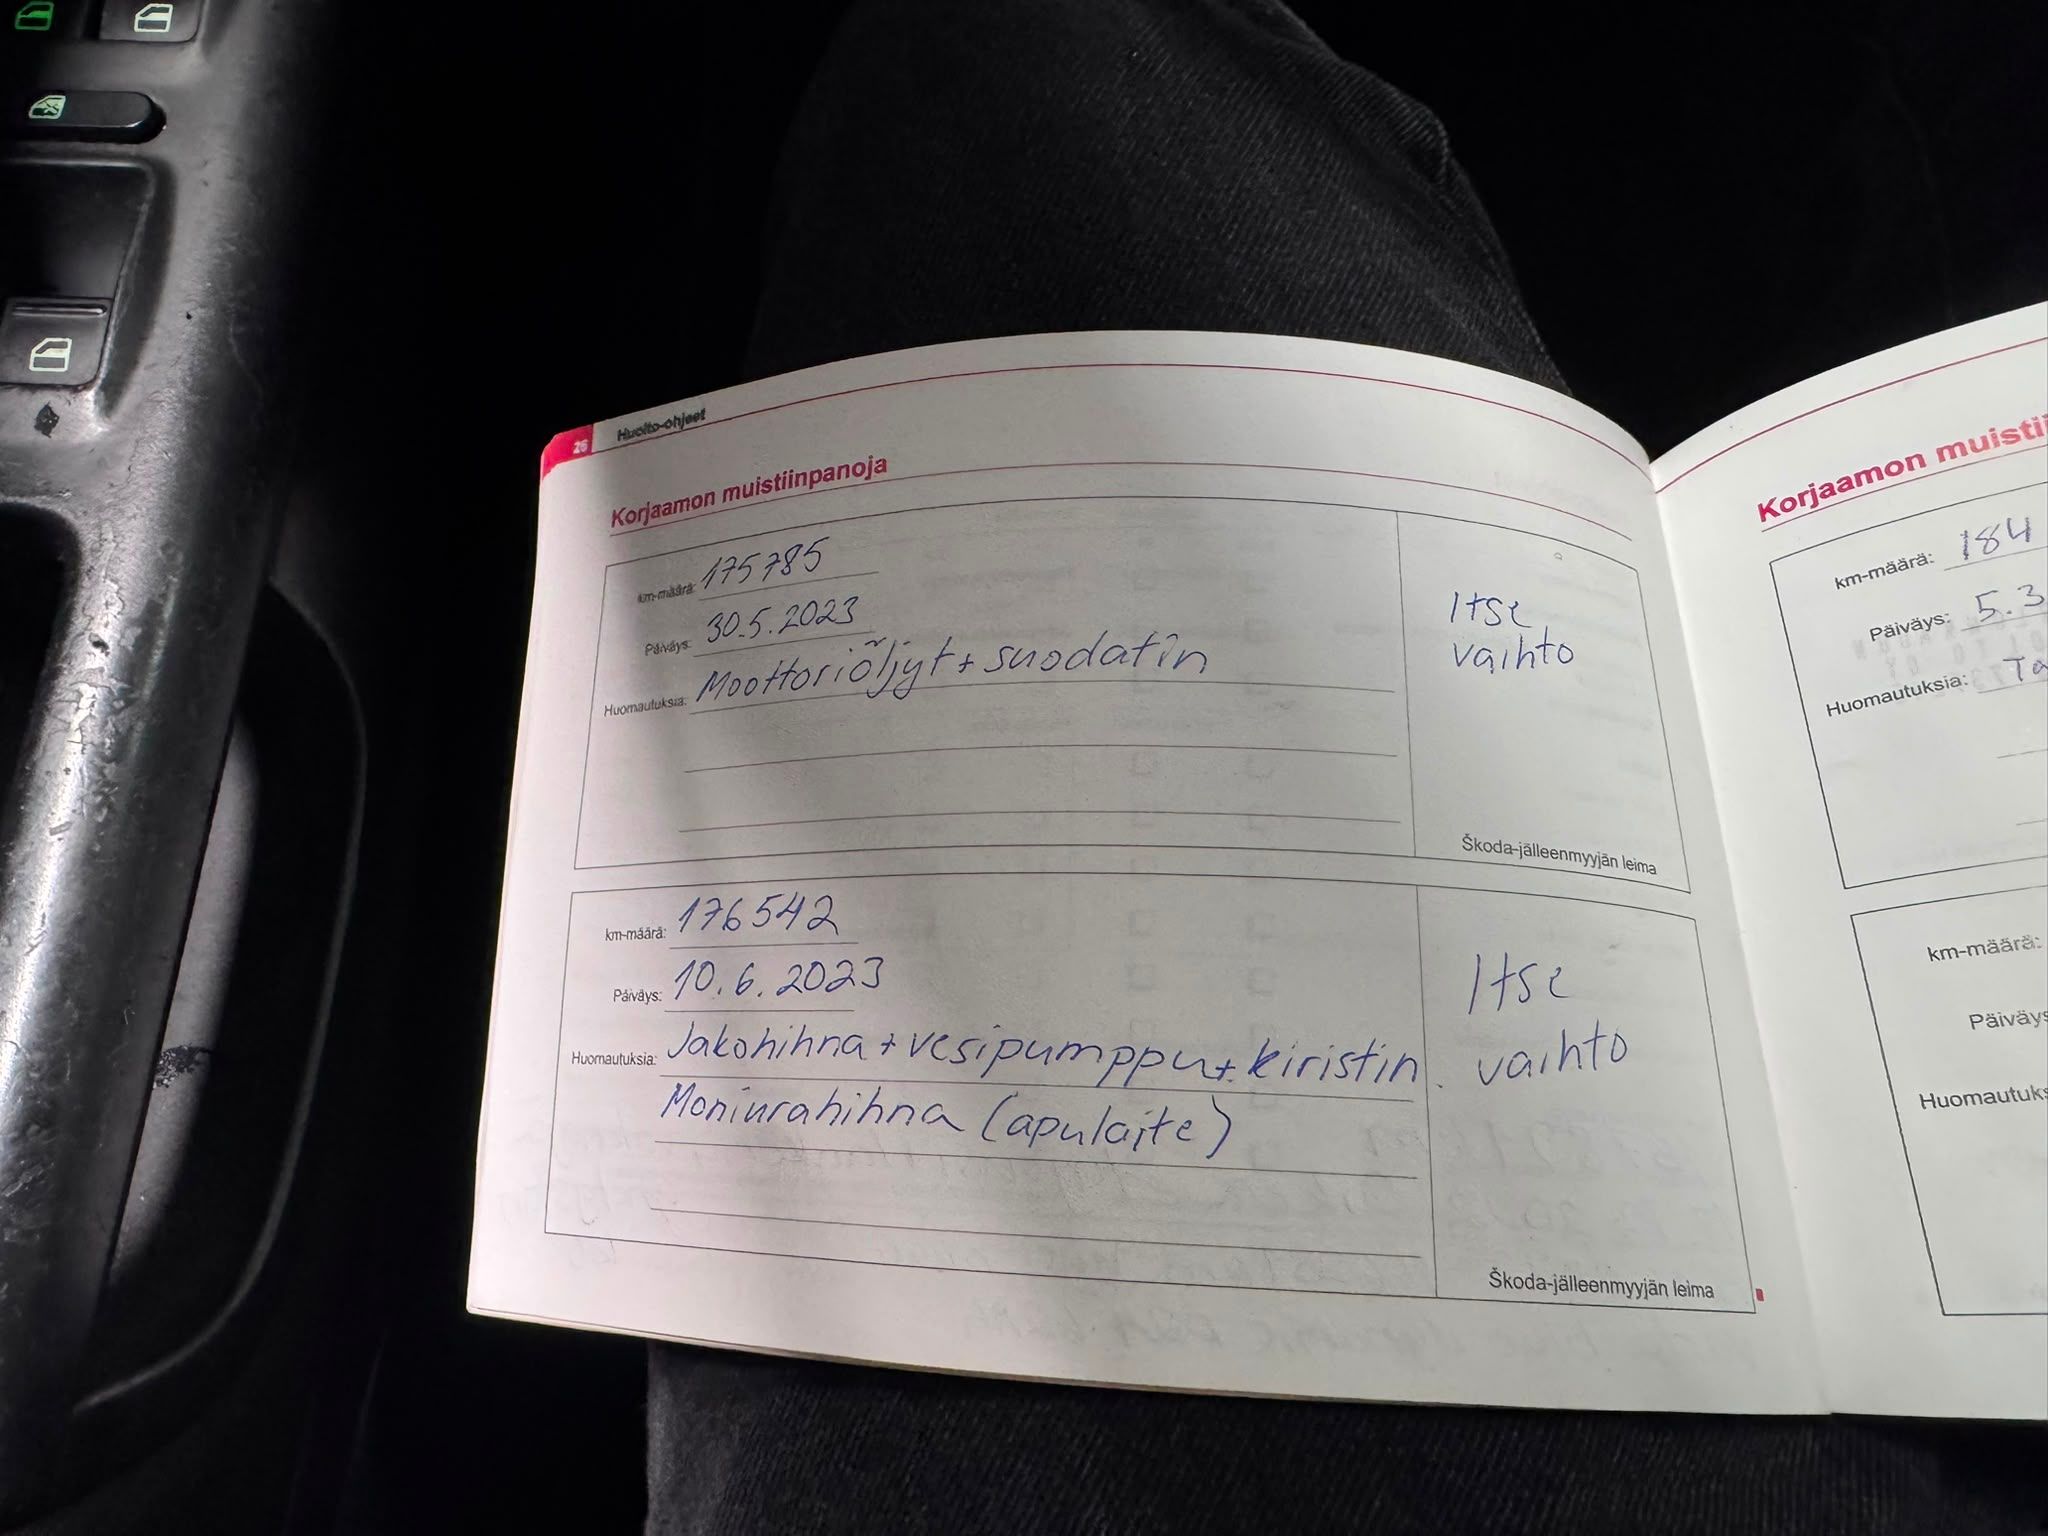 26 Huolto-ohjeet
Korjaamon muistiinpanoja
km-määrä: 175785
Päiväys: 30.5.2023
Huomautuksia: Moottoriöljyt + suodatin
Itse
vaihto
Škoda-jälleenmyyjän leima
km-määrä: 176542
Päiväys: 10.6.2023
Huomautuksia: Jakohihna + vesipumppu + kiristin.
Moniurahihna (apulaite)
Itse
vaihto
Škoda-jälleenmyyjän leima
Korjaamon muistii
km-määrä: 184
Päiväys: 5.3
Huomautuksia: Ta
km-määrä:
Päiväys
Huomautuks